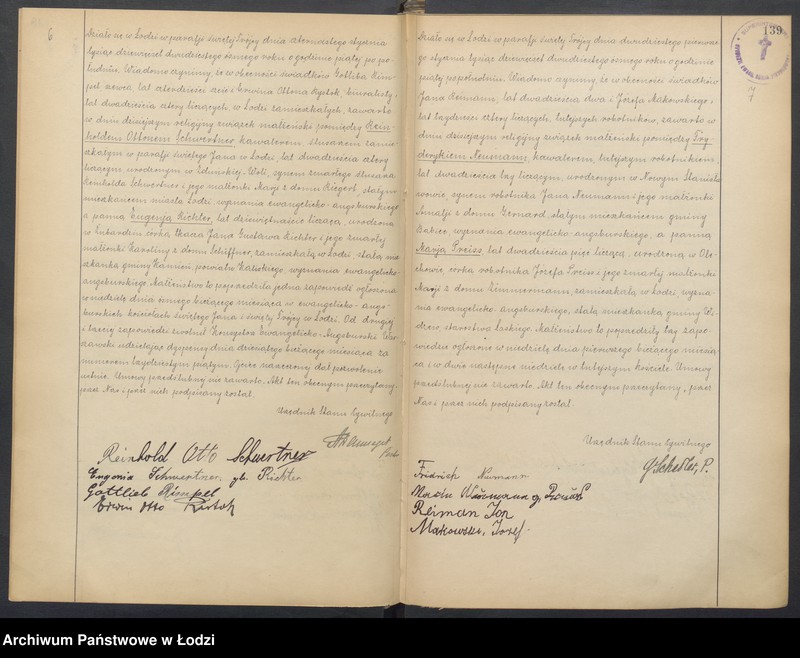 6
Działo się w Łodzi w parafji świętej Trójcy dnia czternastego stycznia
tysiąc dziewięćset dwudziestego ósmego roku o godzinie piątej po po-
łudniu. Wiadomo czynimy, że w obecności świadków Gotliba Rim-
pel szewca lat czterdzieści sześć i Erwina Ottona Rystok, biuralisty,
lat dwadzieścia cztery liczących, w Łodzi zamieszkałych, zawarto
w dniu dzisiejszym religijny związek małżeński pomiędzy Rein-
holdem Ottonem Schwertner, kawalerem, ślusarzem zamie-
szkałym w parafji świętego Jana w Łodzi, lat dwadzieścia cztery
liczącym, urodzonym w Zduńskiej-Woli, synem zmarłego ślusarza
Reinholda Schwertner i jego małżonki Marji z domu Riegert, stałym
mieszkańcem miasta Łodzi wyznania ewangelicko-augsburskiego
a panną Eugenją Richter, lat dziewiętnaście liczącą, urodzoną
w córką tkacza Jana Gustawa Richter i jego zmarłej
małżonki Karoliny z domu Schiffner, zamieszkałą w Łodzi, stałą mie-
szkanką gminy Kamień, powiatu Kaliskiego, wyznania ewangelicko-
augsburskiego. Małżeństwo to poprzedziła jedna zapowiedź ogłoszona
w niedzielę dnia ósmego bieżącego miesiąca w ewangelicko-augs-
burskich kościołach świętego Jana i świętej Trójcy w Łodzi. Od drugiej
i trzeciej zapowiedzi zwolnił Konsystorz Ewangelicko-Augsburski War-
szawski udzielając dyspensy dnia dziesiątego bieżącego miesiąca za
numerem trzydziestym piątym. Ojciec narzeczonej dał pozwolenie
ustnie. Umowy przedślubnej nie zawarto. Akt ten obecnym przeczytany,
przez Nas i przez nich podpisany został.
Urzędnik Stanu Cywilnego
Reinhold Otto Schwertner
Eugenia Schwertner gb. Richter
Gottlieb Rimpel
Erwin Otto Ristok
139
7
Działo się w Łodzi w parafji świętej Trójcy dnia dwudziestego pierwsze-
go stycznia tysiąc dziewięćset dwudziestego ósmego roku o godzinie
piątej popołudniu. Wiadomo czynimy, że w obecności świadków
Jana Reimann, lat dwadzieścia dwa i Józefa Makowskiego,
lat trzydzieści cztery liczących, tutejszych robotników, zawarto w
dniu dzisiejszym religijny związek małżeński pomiędzy Fry-
derykiem Neumann, kawalerem, tutejszym robotnikiem,
lat dwadzieścia trzy liczącym, urodzonym w Nowym Stanisła-
wowie, synem robotnika Jana Neumann i jego małżonki
Amalji z domu Gernard, stałym mieszkańcem gminy
Babice, wyznania ewangelicko-augsburskiego, a panną
Marją Preiss, lat dwadzieścia pięć liczącą, urodzoną w Ole-
chowie, córką robotnika Józefa Preiss i jego zmarłej małżonki
Marji z domu Zimmermann, zamieszkałą w Łodzi, wyzna-
nia ewangelicko-augsburskiego, stałą mieszkanką gminy Wi-
dzew, starostwa Łaskiego. Małżeństwo to poprzedziły trzy zapo-
wiedzie ogłoszone w niedzielę dnia pierwszego bieżącego miesią-
ca i w dwie następne niedziele w tutejszym kościele. Umowy
przedślubnej nie zawarto. Akt ten obecnym przeczytany, przez
Nas i przez nich podpisany został.
Urzędnik Stanu Cywilnego
G. Schedler, P.
Fridrich Neumann
Reiman Jan
Makowski, Józef.
Archiwum Państwowe w Łodzi